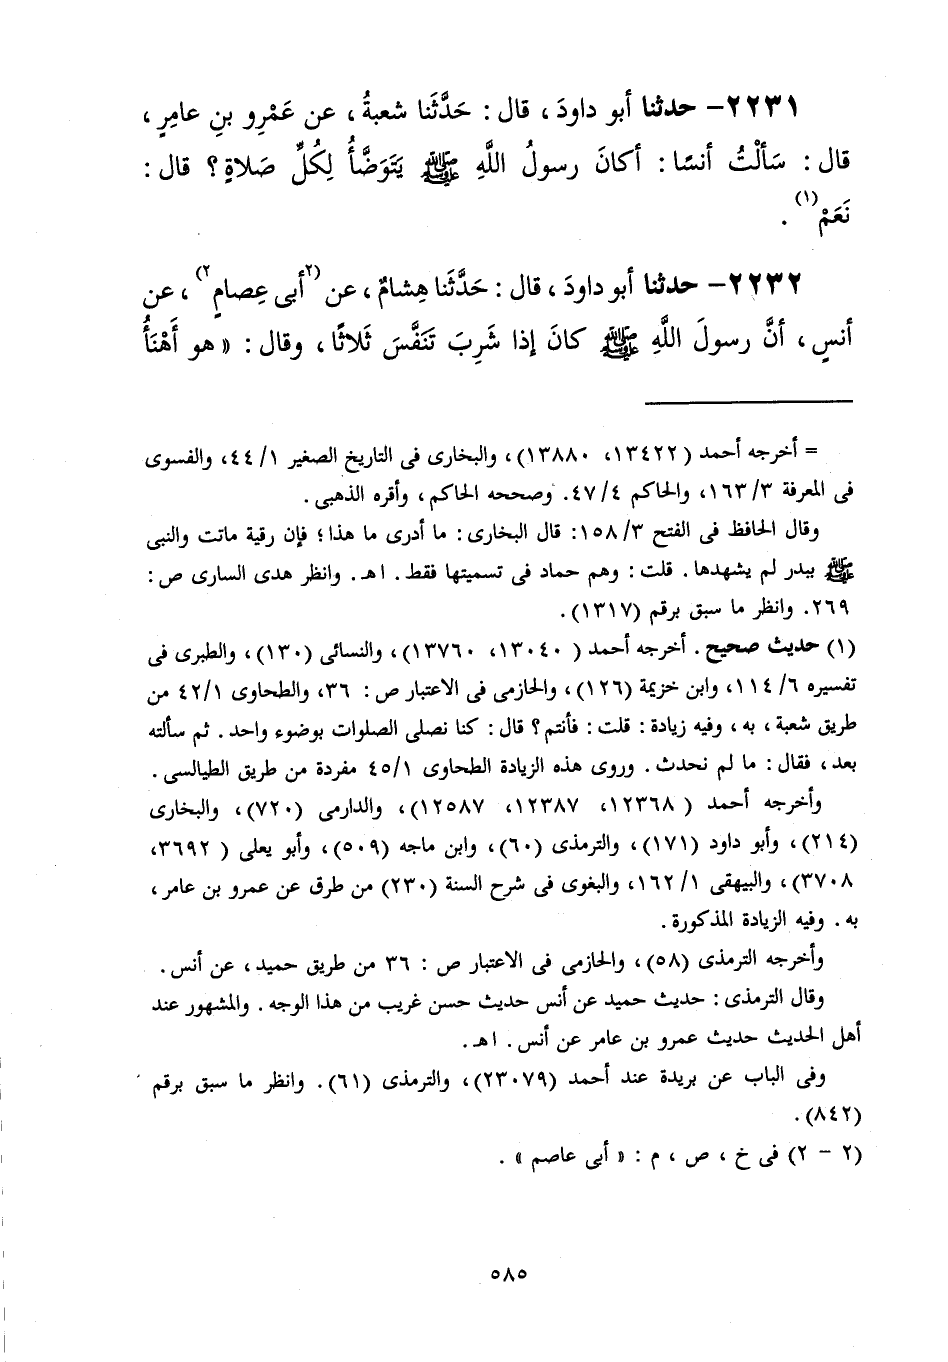 ٢٢٣١- حدثنا أبو داودَ ، قال : حَدَّثَنا شعبةُ ، عن عَمْرِو بنِ عامِرٍ ،
قال : سَألْتُ أنسًا : أكانَ رسولُ اللَّهِ ﷺ يَتَوَضَّأُ لِكُلِّ صَلاةٍ ؟ قال :
نَعَمْ(١) .
٢٢٣٢- حدثنا أبو داودَ ، قال : حَدَّثَنا هِشامٌ ، عن (٢أبى عِصامٍ٢) ، عن
أنسٍ ، أنَّ رسولَ اللَّهِ ﷺ كانَ إذا شَرِبَ تَنَفَّسَ ثَلاثًا ، وقال : « هو أَهْنَأُ
= أخرجه أحمد (١٣٤٢٢، ١٣٨٨٠)، والبخارى فى التاريخ الصغير ٤٤/١، والفسوى
فى المعرفة ١٦٣/٣، والحاكم ٤٧/٤. وصححه الحاكم ، وأقره الذهبى .
وقال الحافظ فى الفتح ١٥٨/٣: قال البخارى : ما أدرى ما هذا ؛ فإن رقية ماتت والنبى
ﷺ ببدر لم يشهدها . قلت : وهم حماد فى تسميتها فقط . اهـ . وانظر هدى السارى ص :
٢٦٩. وانظر ما سبق برقم (١٣١٧).
(١) حديث صحيح . أخرجه أحمد ( ١٣٠٤٠، ١٣٧٦٠)، والنسائى (١٣٠)، والطبرى فى
تفسيره ١١٤/٦، وابن خزيمة (١٢٦)، والحازمى فى الاعتبار ص : ٣٦، والطحاوى ٤٢/١ من
طريق شعبة ، به ، وفيه زيادة : قلت : فأنتم ؟ قال : كنا نصلى الصلوات بوضوء واحد . ثم سألته
بعد ، فقال : ما لم نحدث . وروى هذه الزيادة الطحاوى ٤٥/١ مفردة من طريق الطيالسى .
وأخرجه أحمد ( ١٢٣٦٨، ١٢٣٨٧، ١٢٥٨٧)، والدارمى (٧٢٠)، والبخارى
(٢١٤)، وأبو داود (١٧١)، والترمذى (٦٠)، وابن ماجه (٥٠٩)، وأبو يعلى ( ٣٦٩٢،
٣٧٠٨)، والبيهقى ١٦٢/١، والبغوى فى شرح السنة (٢٣٠) من طرق عن عمرو بن عامر ،
به . وفيه الزيادة المذكورة .
وأخرجه الترمذى (٥٨)، والحازمى فى الاعتبار ص : ٣٦ من طريق حميد ، عن أنس .
وقال الترمذى : حديث حميد عن أنس حديث حسن غريب من هذا الوجه . والمشهور عند
أهل الحديث حديث عمرو بن عامر عن أنس . اهـ .
وفى الباب عن بريدة عند أحمد (٢٣٠٧٩)، والترمذى (٦١). وانظر ما سبق برقم
(٨٤٢).
(٢ - ٢) فى خ ، ص ، م : « أبى عاصم » .
٥٨٥